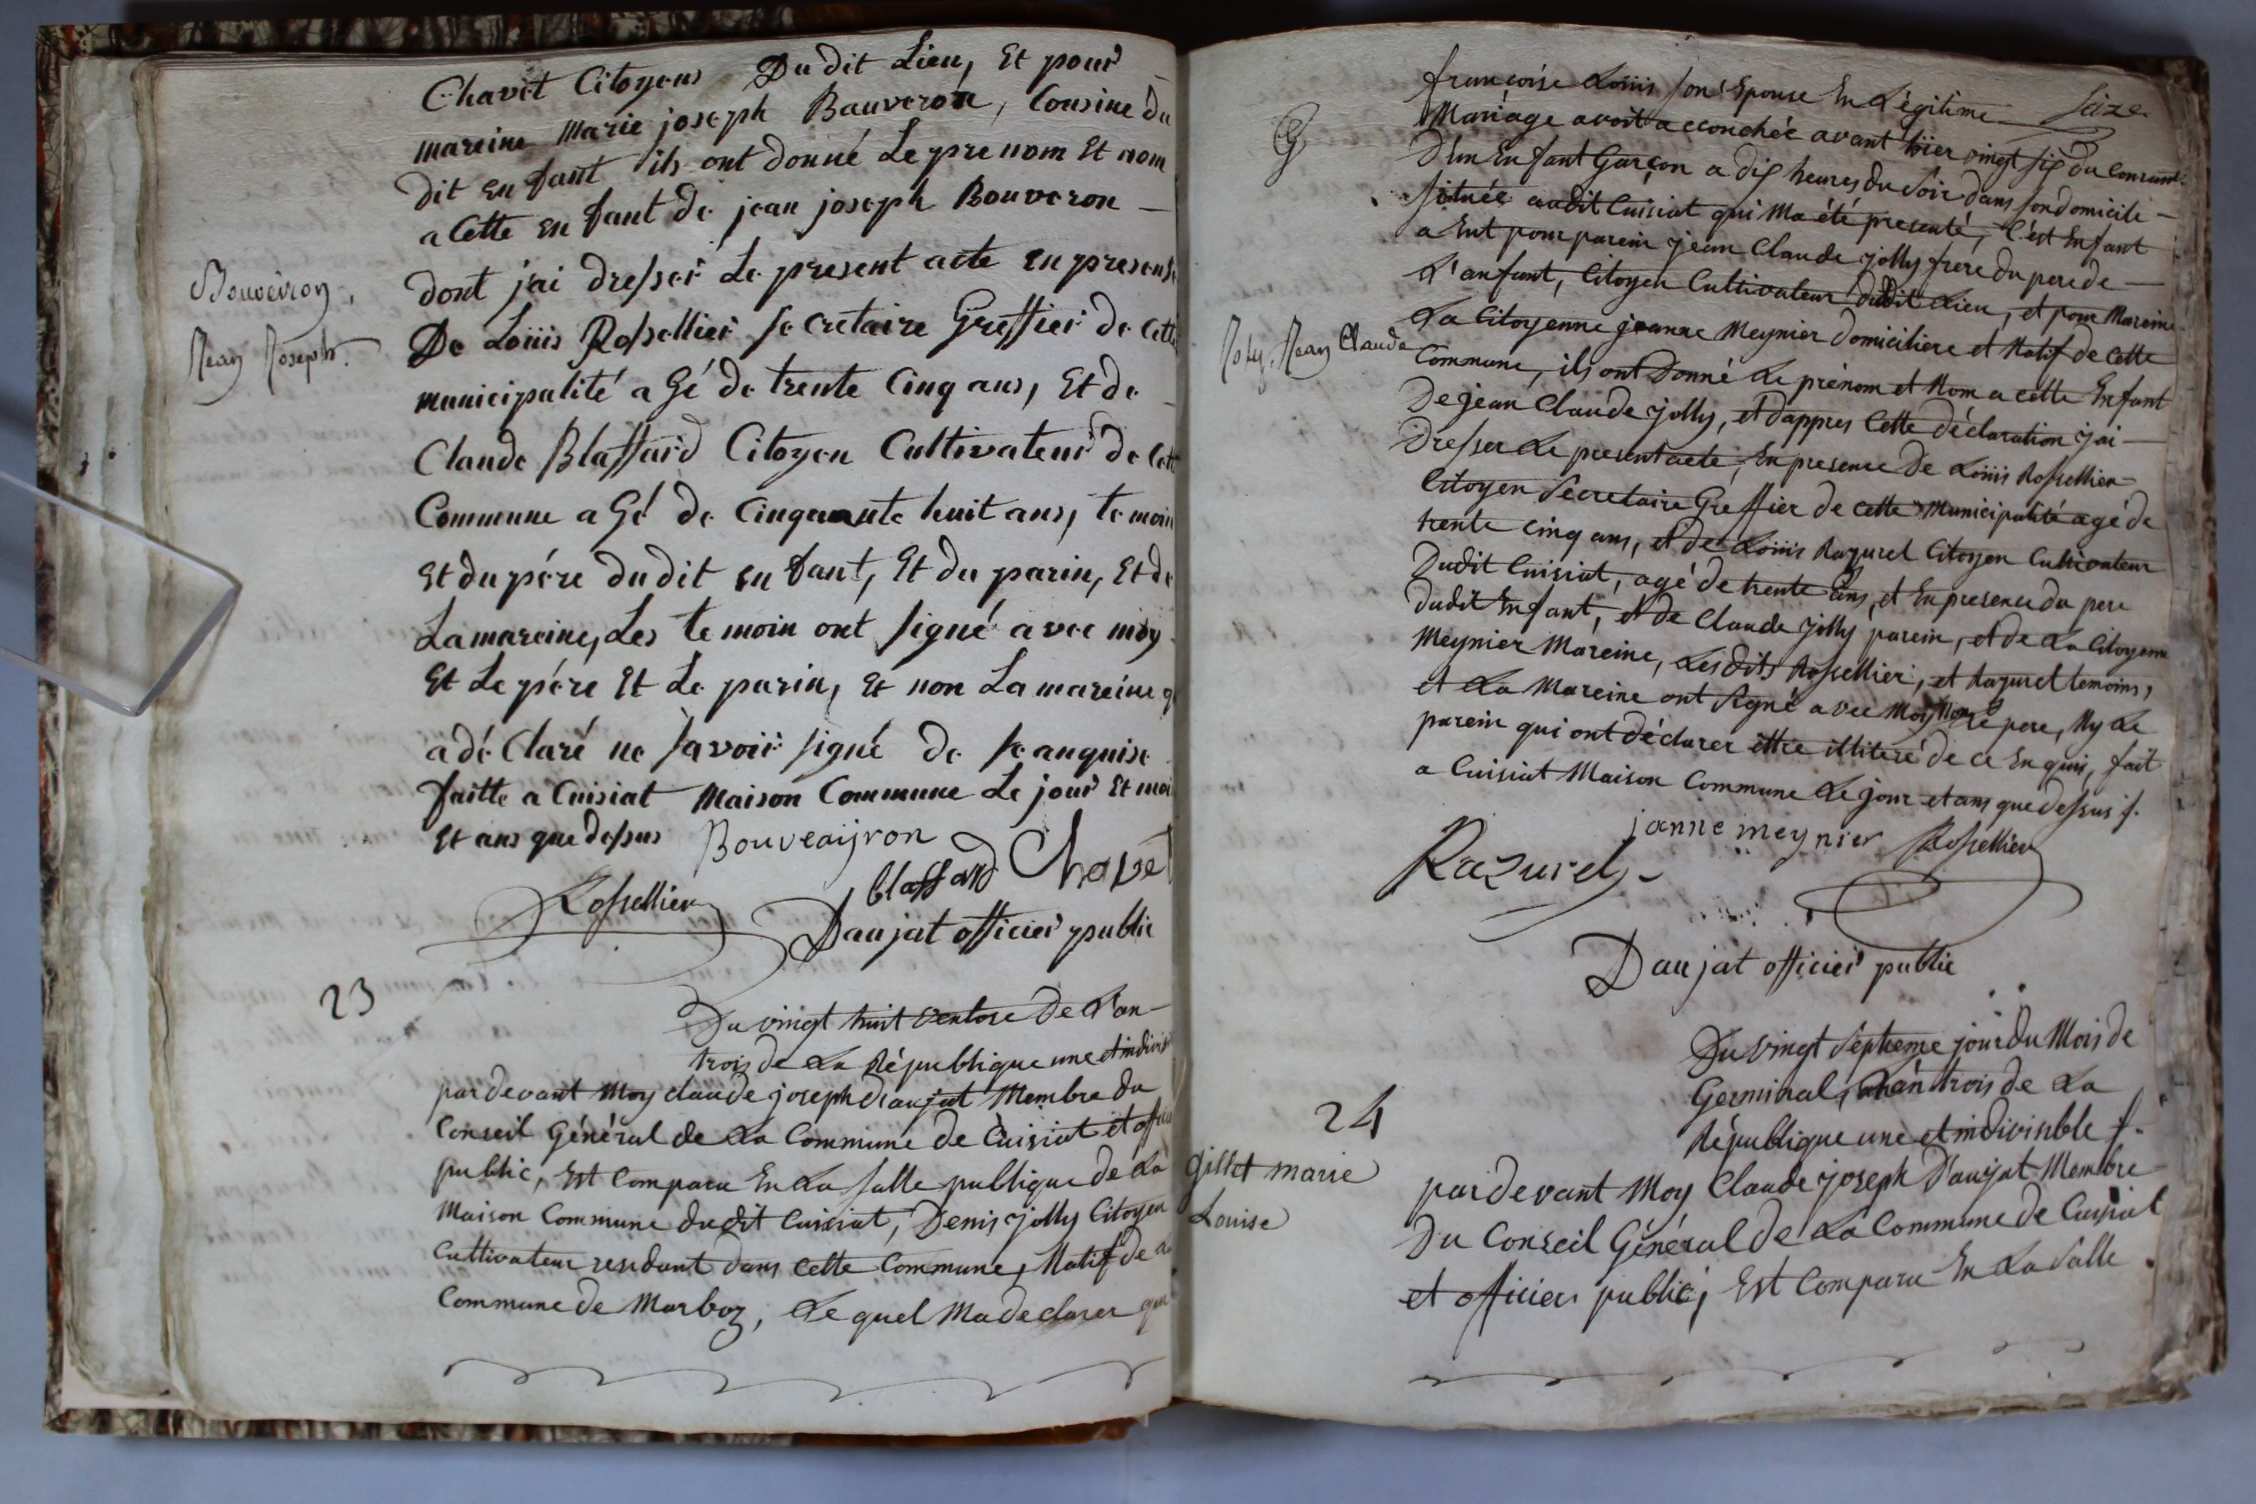 Chavet Citoyens Du dit Lieu, Et pour
mareine Marie joseph Bauveron, Cousine du
dit en fant ils ont donné Le pre nom Et nom
a Cette en fant de jean joseph Bouveron —
dont j'ai dresser Le present acte en presense
De Loüis Rossellier se cretaire Greffier de cette
municipalité a Gé de trente Cinq ans, Et de
Claude Blaffard Citoyen Cultivateur de Cett
Commune a Gé de Cinquante huit ans, te moin
Et du pére du dit en fant, Et du parin, Et de
La mareine, Les te moin ont signé a vec moy
Et Le pére Et Le parin, Et non La mareine q
a dé Claré ne savoir signé de se anquise
faitte a Cuisiat Maison Commune Le jour Et moi
Et ans que dessus
Bouveayron
blaffard Chavet
Rossellier
Daujat officier public
Bouveiron,
Jean Joseph.
23
Du vingt huit ventose de L'an —
trois de La République une et indivis
par devant Moy claude joseph daujat Membre du
Conseil Général de La Commune de Cuisiat et offic
public, Est Comparu En La salle publique de La
Maison Commune dudit Cuisiat, Denis jolly Citoyen
Cultivateur residant dans cette Commune, Natif de La
Commune de Marboz, Le quel Ma declarer que
seize
françoise Loüis son Epouse En Légitime
Mariage avoit accouchée avant hier vingt six du Courant
D'un Enfant Garçon a dix heures du soir dans son domicile —
située audit Cuisiat qui Ma été presenté, C'est Enfant
a Eut pour parein jean Claude jolly frere du pere de —
L'anfant, Citoyen Cultivateur dudit Lieu, et pour Mareine
La Citoyenne jeanne Meynier domiciliere et Natif de Cette
Commune, ils ont Donné Le prénom et Nom a cette Enfant
De jean Claude jolly, et d'appres Cette déclaration j'ai —
Dresser Le present acte, En presence De Loüis Rossellier
Citoyen Secretaire Greffier de cette Municipalité agé de
trente cinq ans, et de Loüis Razurel Citoyen Cultivateur
Dudit Cuisiat, agé de trente ans, et En presence du pere
dudit Enfant, et de Claude jolly parein, et de La Citoyenne
Meynier Mareine, Lesdits Rossellier, et Razurel temoins,
et La Mareine ont Signé avec Moy Non Le pere, Ny Le
parein qui ont déclarer ettre illiteré de ce Enquis, fait
a Cuisiat Maison Commune Le jour et ans que dessus f.
janne meynier Rossellier
Razurel
Daujat officier public
Joly. Jean Claude
24
gillet marie
Louise
Du Vingt Septieme jour du Mois de
Germinal, L'an trois de La
République une et indivisible f.
par devant Moy Claude joseph D'aujat Membre
Du Conseil Général de La Commune de Cuisiat
et officier public, Est Comparu En La Salle